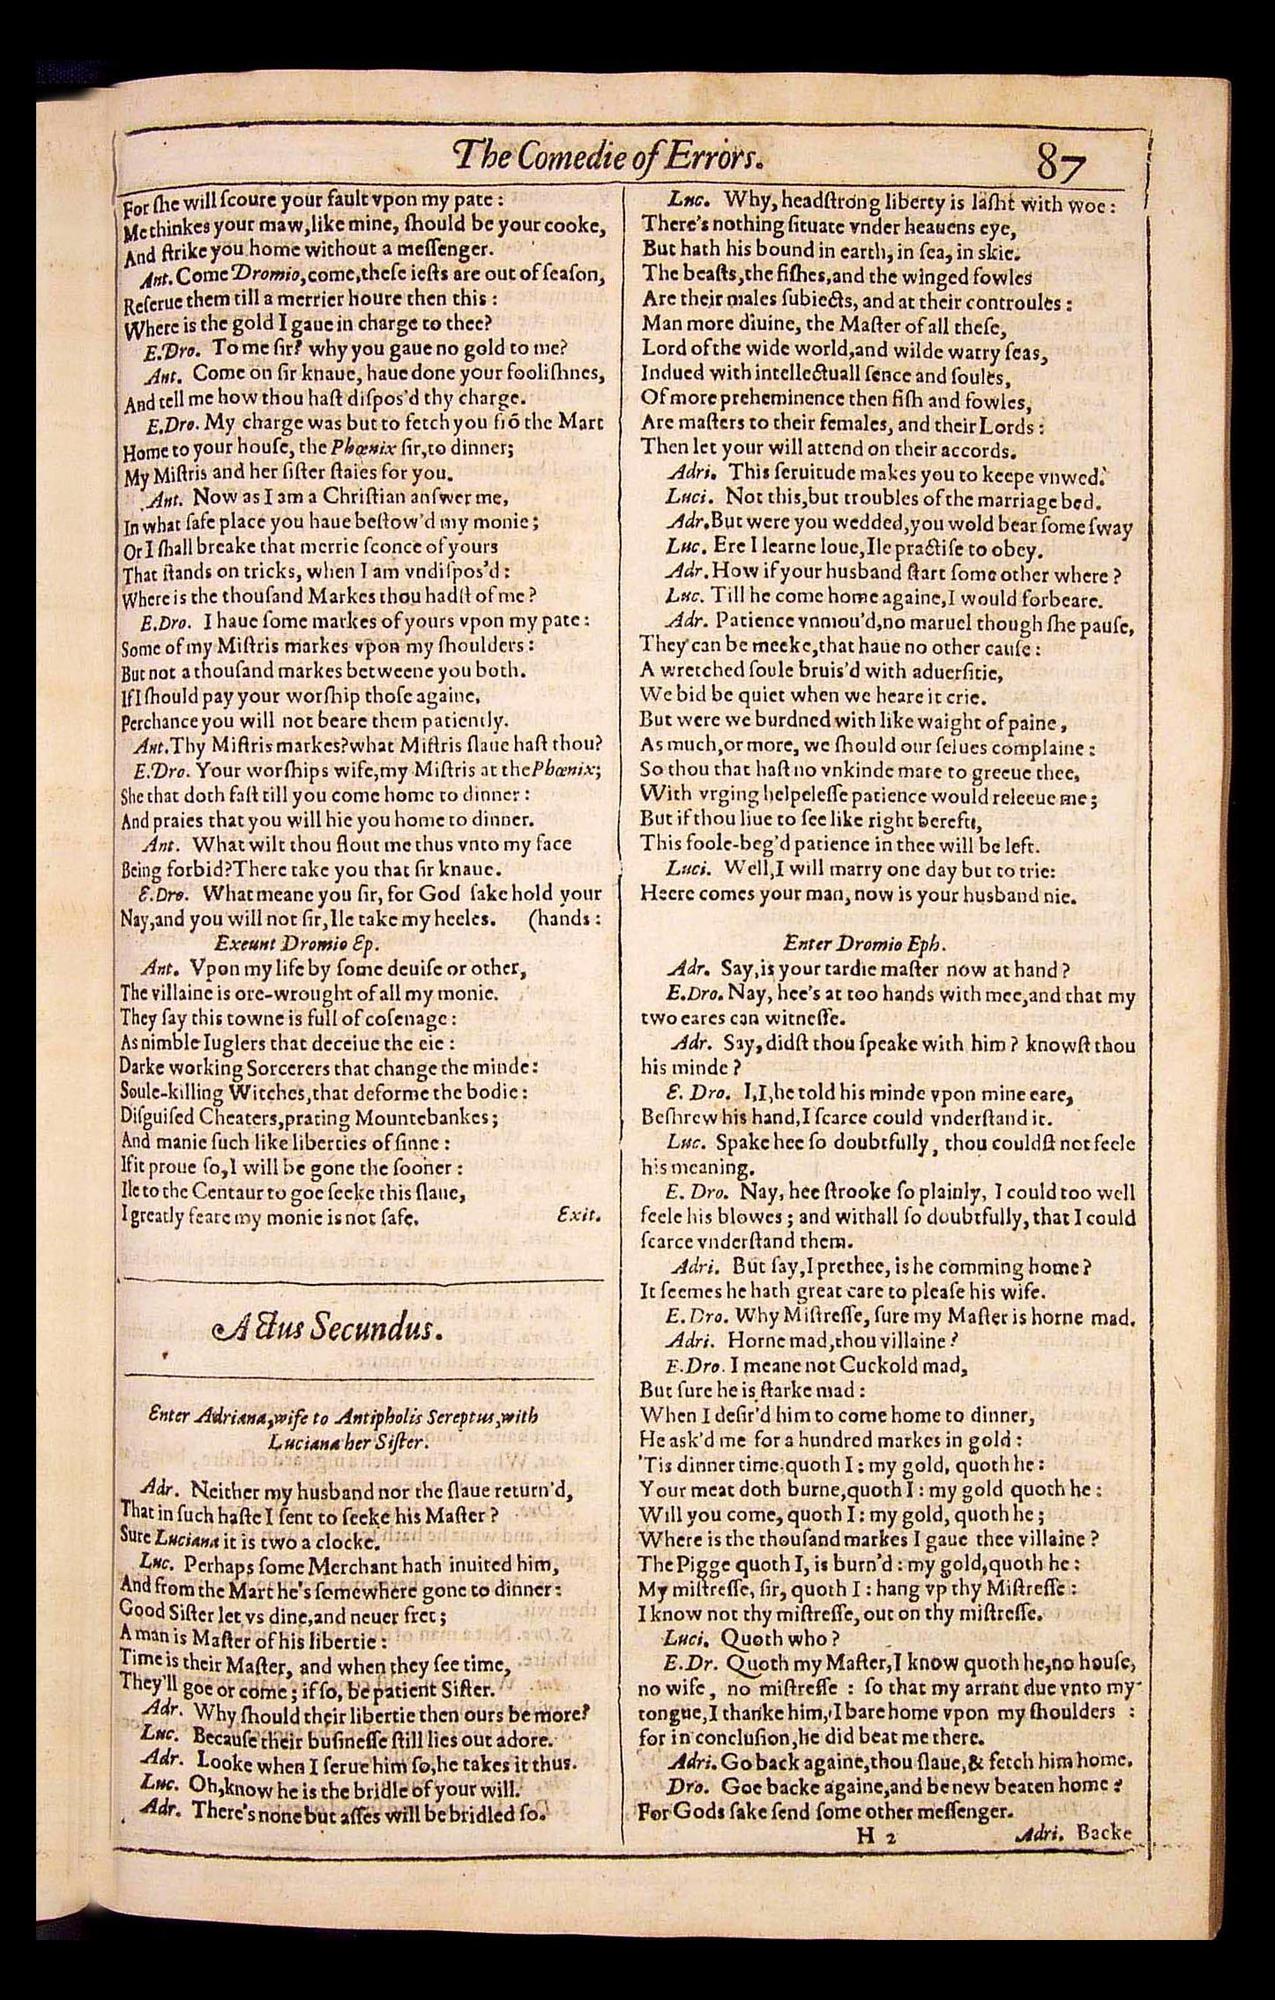 The Comedie of Errors. 87
For ſhe will ſcoure your fault vpon my pate :
Me thinkes your maw, like mine, ſhould be your cooke,
And ſtrike you home without a meſſenger.
Ant. Come Dromio, come, theſe ieſts are out of ſeaſon,
Reſerue them till a merrier houre then this :
Where is the gold I gaue in charge to thee?
E.Dro. To me ſir? why you gaue no gold to me?
Ant. Come on ſir knaue, haue done your fooliſhnes,
And tell me how thou haſt diſpos'd thy charge.
E.Dro. My charge was but to fetch you frō the Mart
Home to your houſe, the Phœnix ſir, to dinner;
My Miſtris and her ſiſter ſtaies for you.
Ant. Now as I am a Chriſtian anſwer me,
In what ſafe place you haue beſtow'd my monie;
Or I ſhall breake that merrie ſconce of yours
That ſtands on tricks, when I am vndiſpos'd :
Where is the thouſand Markes thou hadſt of me?
E.Dro. I haue ſome markes of yours vpon my pate :
Some of my Miſtris markes vpon my ſhoulders :
But not a thouſand markes betweene you both.
If I ſhould pay your worſhip thoſe againe,
Perchance you will not beare them patiently.
Ant. Thy Miſtris markes? what Miſtris ſlaue haſt thou?
E.Dro. Your worſhips wife, my Miſtris at the Phœnix;
She that doth faſt till you come home to dinner :
And praies that you will hie you home to dinner.
Ant. What wilt thou flout me thus vnto my face
Being forbid? There take you that ſir knaue.
E.Dro. What meane you ſir, for God ſake hold your
Nay, and you will not ſir, Ile take my heeles. (hands :
Exeunt Dromio Ep.
Ant. Vpon my life by ſome deuiſe or other,
The villaine is ore-wrought of all my monie.
They ſay this towne is full of coſenage :
As nimble Iuglers that deceiue the eie :
Darke working Sorcerers that change the minde :
Soule-killing Witches, that deforme the bodie :
Diſguiſed Cheaters, prating Mountebankes;
And manie ſuch like liberties of ſinne :
If it proue ſo, I will be gone the ſooner :
Ile to the Centaur to goe ſeeke this ſlaue,
I greatly feare my monie is not ſafe. Exit.
Actus Secundus.
Enter Adriana, wife to Antipholis Sereptus, with
Luciana her Siſter.
Adr. Neither my husband nor the ſlaue return'd,
That in ſuch haſte I ſent to ſeeke his Maſter?
Sure Luciana it is two a clocke.
Luc. Perhaps ſome Merchant hath inuited him,
And from the Mart he's ſomewhere gone to dinner :
Good Siſter let vs dine, and neuer fret;
A man is Maſter of his libertie :
Time is their Maſter, and when they ſee time,
They'll goe or come; if ſo, be patient Siſter.
Adr. Why ſhould their libertie then ours be more?
Luc. Becauſe their buſineſſe ſtill lies out adore.
Adr. Looke when I ſerue him ſo, he takes it thus.
Luc. Oh, know he is the bridle of your will.
Adr. There's none but aſſes will be bridled ſo.
Luc. Why, headſtrong liberty is laſht with woe :
There's nothing ſituate vnder heauens eye,
But hath his bound in earth, in ſea, in skie.
The beaſts, the fiſhes, and the winged fowles
Are their males ſubiects, and at their controules :
Man more diuine, the Maſter of all theſe,
Lord of the wide world, and wilde watry ſeas,
Indued with intellectuall ſence and ſoules,
Of more preheminence then fiſh and fowles,
Are maſters to their females, and their Lords :
Then let your will attend on their accords.
Adri. This ſeruitude makes you to keepe vnwed.
Luci. Not this, but troubles of the marriage bed.
Adr. But were you wedded, you wold bear ſome ſway
Luc. Ere I learne loue, Ile practiſe to obey.
Adr. How if your husband ſtart ſome other where?
Luc. Till he come home againe, I would forbeare.
Adr. Patience vnmou'd, no maruel though ſhe pauſe,
They can be meeke, that haue no other cauſe :
A wretched ſoule bruis'd with aduerſitie,
We bid be quiet when we heare it crie.
But were we burdned with like waight of paine,
As much, or more, we ſhould our ſelues complaine :
So thou that haſt no vnkinde mate to greeue thee,
With vrging helpeleſſe patience would releeue me;
But if thou liue to ſee like right bereft,
This foole-beg'd patience in thee will be left.
Luci. Well, I will marry one day but to trie :
Heere comes your man, now is your husband nie.
Enter Dromio Eph.
Adr. Say, is your tardie maſter now at hand?
E.Dro. Nay, hee's at too hands with mee, and that my
two eares can witneſſe.
Adr. Say, didſt thou ſpeake with him? knowſt thou
his minde?
E. Dro. I, I, he told his minde vpon mine eare,
Beſhrew his hand, I ſcarce could vnderſtand it.
Luc. Spake hee ſo doubtfully, thou couldſt not feele
his meaning.
E. Dro. Nay, hee ſtrooke ſo plainly, I could too well
feele his blowes; and withall ſo doubtfully, that I could
ſcarce vnderſtand them.
Adri. But ſay, I prethee, is he comming home?
It ſeemes he hath great care to pleaſe his wife.
E.Dro. Why Miſtreſſe, ſure my Maſter is horne mad.
Adri. Horne mad, thou villaine?
E.Dro. I meane not Cuckold mad,
But ſure he is ſtarke mad :
When I deſir'd him to come home to dinner,
He ask'd me for a hundred markes in gold :
'Tis dinner time, quoth I : my gold, quoth he :
Your meat doth burne, quoth I : my gold quoth he :
Will you come, quoth I : my gold, quoth he;
Where is the thouſand markes I gaue thee villaine?
The Pigge quoth I, is burn'd : my gold, quoth he :
My miſtreſſe, ſir, quoth I : hang vp thy Miſtreſſe :
I know not thy miſtreſſe, out on thy miſtreſſe.
Luci. Quoth who?
E.Dr. Quoth my Maſter, I know quoth he, no houſe,
no wife, no miſtreſſe : ſo that my arrant due vnto my
tongue, I thanke him, I bare home vpon my ſhoulders :
for in concluſion, he did beat me there.
Adri. Go back againe, thou ſlaue, & fetch him home.
Dro. Goe backe againe, and be new beaten home?
For Gods ſake ſend ſome other meſſenger.
H 2 Adri. Backe